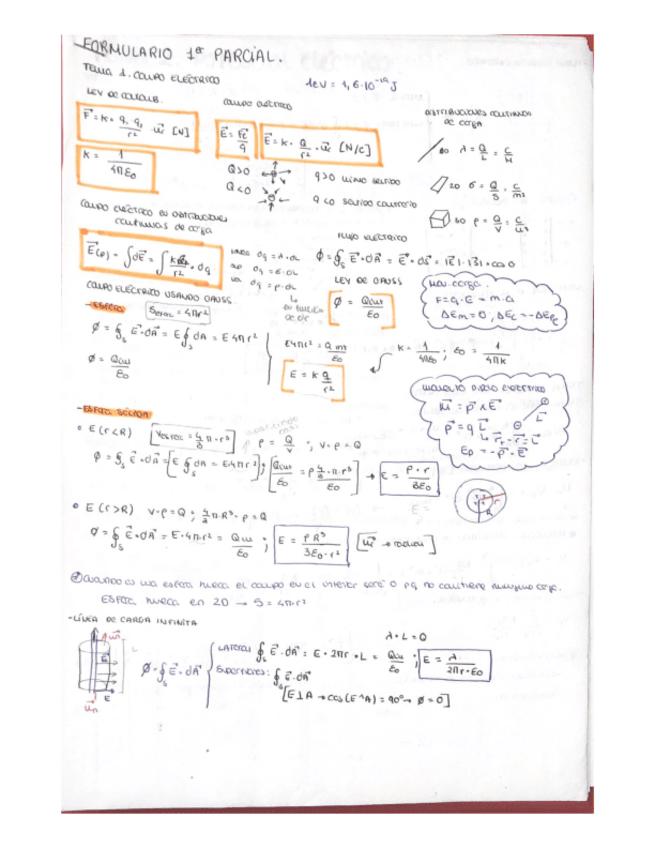 FORMULARIO 1er PARCIAL.
TEMA 1. CAMPO ELÉCTRICO
1eV = 1,6·10^-19 J
LEY DE COULOMB.
F⃗ = k· q₁ q₂ / r² · u⃗r [N]
K = 1 / 4πε₀
CAMPO ELÉCTRICO
E⃗ = F⃗e / q
E⃗ = k· Q / r² · u⃗r [N/C]
Q>0
Q<0
q>0 mismo sentido
q<0 sentido contrario
DISTRIBUCIONES CONTINUAS DE CARGA
λ = Q/L = C/M
2D σ = Q/S = C/m²
3D ρ = Q/V = C/m³
CAMPO ELÉCTRICO EN DISTRIBUCIONES
CONTINUAS DE CARGA
E⃗(p) = ∫dE⃗ = ∫ k / r² · dq
dq = λ·dL
dq = σ·dL
dq = ρ·dL
FLUJO ELÉCTRICO
Φ = ∮s E⃗·dA⃗ = E⃗·ds⃗ = |E|·|S|·cos θ
LEY DE GAUSS
Φ = Qint / ε₀
MOV. CARGA.
F = q·E = m·a
ΔEm = 0, ΔEc = -ΔEpe
CAMPO ELÉCTRICO USANDO GAUSS.
-ESFERA
Sesfera = 4πr²
Φ = ∮s E⃗·dA⃗ = E∮s dA = E4πr²
Φ = Qint / ε₀
E4πr² = Q int / ε₀
E = k q / r²
K = 1 / 4πε₀ ; ε₀ = 1 / 4πk
MOMENTO DIPOLO ELÉCTRICO
M⃗ = p⃗ ∧ E⃗
p⃗ = q L⃗
r⃗₊ - r⃗₋ = L⃗
Ep = -p⃗·E⃗
-ESFERA SÓLIDA
• E (r<R)
Vesfera = 4/3 π·r³
ρ = Q / V ; V·ρ = Q
Φ = ∮s E⃗·dA⃗ = [E ∮s dA = E·4πr²] ; [Qint / ε₀ = ρ 4/3·π·r³ / ε₀] → E = ρ·r / 3ε₀
• E (r>R) V·ρ = Q ; 4/3 π·R³·ρ = Q
Φ = ∮s E⃗·dA⃗ = E·4πr² = Qint / ε₀ ; E = ρR³ / 3ε₀·r² [u⃗r → radial]
Cuando es una esfera hueca el campo en el interior será 0 pq no contiene ninguna carga.
ESFERA hueca en 2D → S = 4π·r²
-LÍNEA DE CARGA INFINITA
λ·L = Q
Φ = ∮s E⃗·dA⃗
LATERAL: ∮s E⃗·dA⃗ = E·2πr·L = Qint / ε₀ ; E = λ / 2πr·ε₀
Superiores: ∮s E⃗·dA⃗
[E⊥A → cos(E^A) = 90° → Φ = 0]